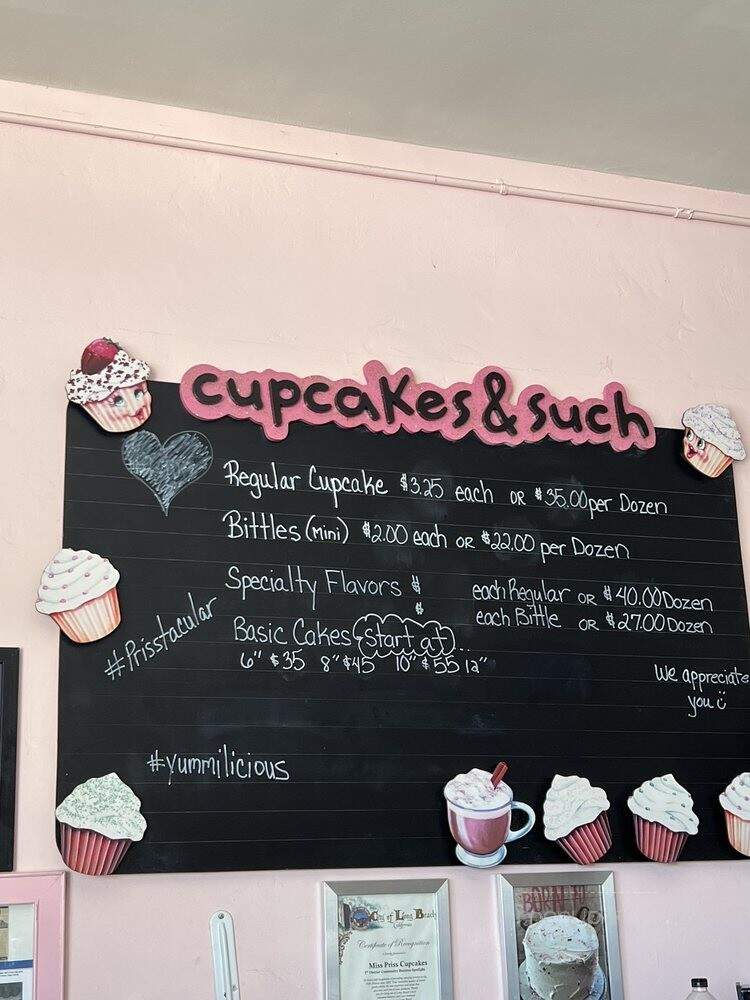 cupcakes & such
Regular Cupcake $3.25 each OR $35.00 per Dozen
Bittles (mini) $2.00 each or $22.00 per Dozen
Specialty Flavors $ each Regular OR $40.00 Dozen
$ each Bittle OR $27.00 Dozen
#Prisstacular
Basic Cakes start at...
6" $35 8" $45 10" $55 12"
We appreciate
you
#yummilicious
City of Long Beach
California
Certificate of Recognition
Miss Priss Cupcakes
BORN TO